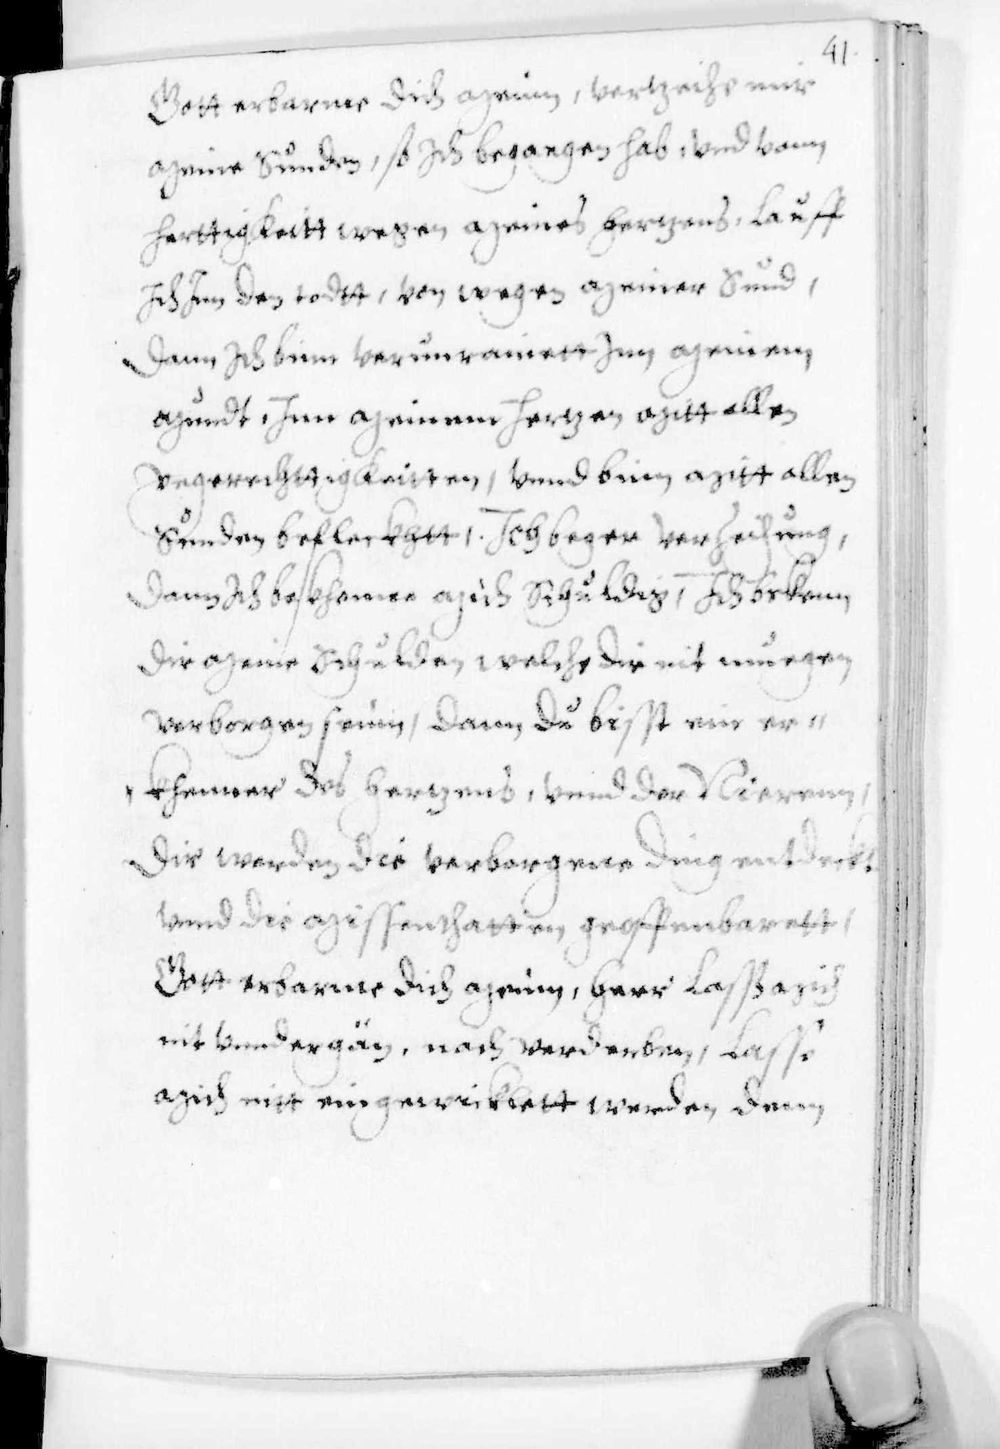 41.
Gott erbarme dich meinn, vertzeihe mir
meine Sünden, so Ich begangen hab, und vonn
herttigkeitt wegen meines hertzens, lauff
Ich Inn den todtt, von wegen meiner Sünd,
dann Ich binn verunrainett Inn meinem
mundt, Inn meinem hertzen mitt allen
ungerechttigkeitten, vnnd binn mitt allen
Sünden befleckhtt, Ich beger verzeihung,
dann Ich bekhenne mich Schuldig, Ich bekenn
dir meine Schulden welche dir nit muegen
verborgen seinn, dann du bisst ein er=
khenner des hertzens, vnnd der Nierenn,
dir werden die verborgene ding entdeckt
vnnd die missenthatten geoffenbarett,
Gott erbarme dich meinn, herr lass mich
nit vndergan, noch verderben, lasse
mich nitt eingewicklett werden denn